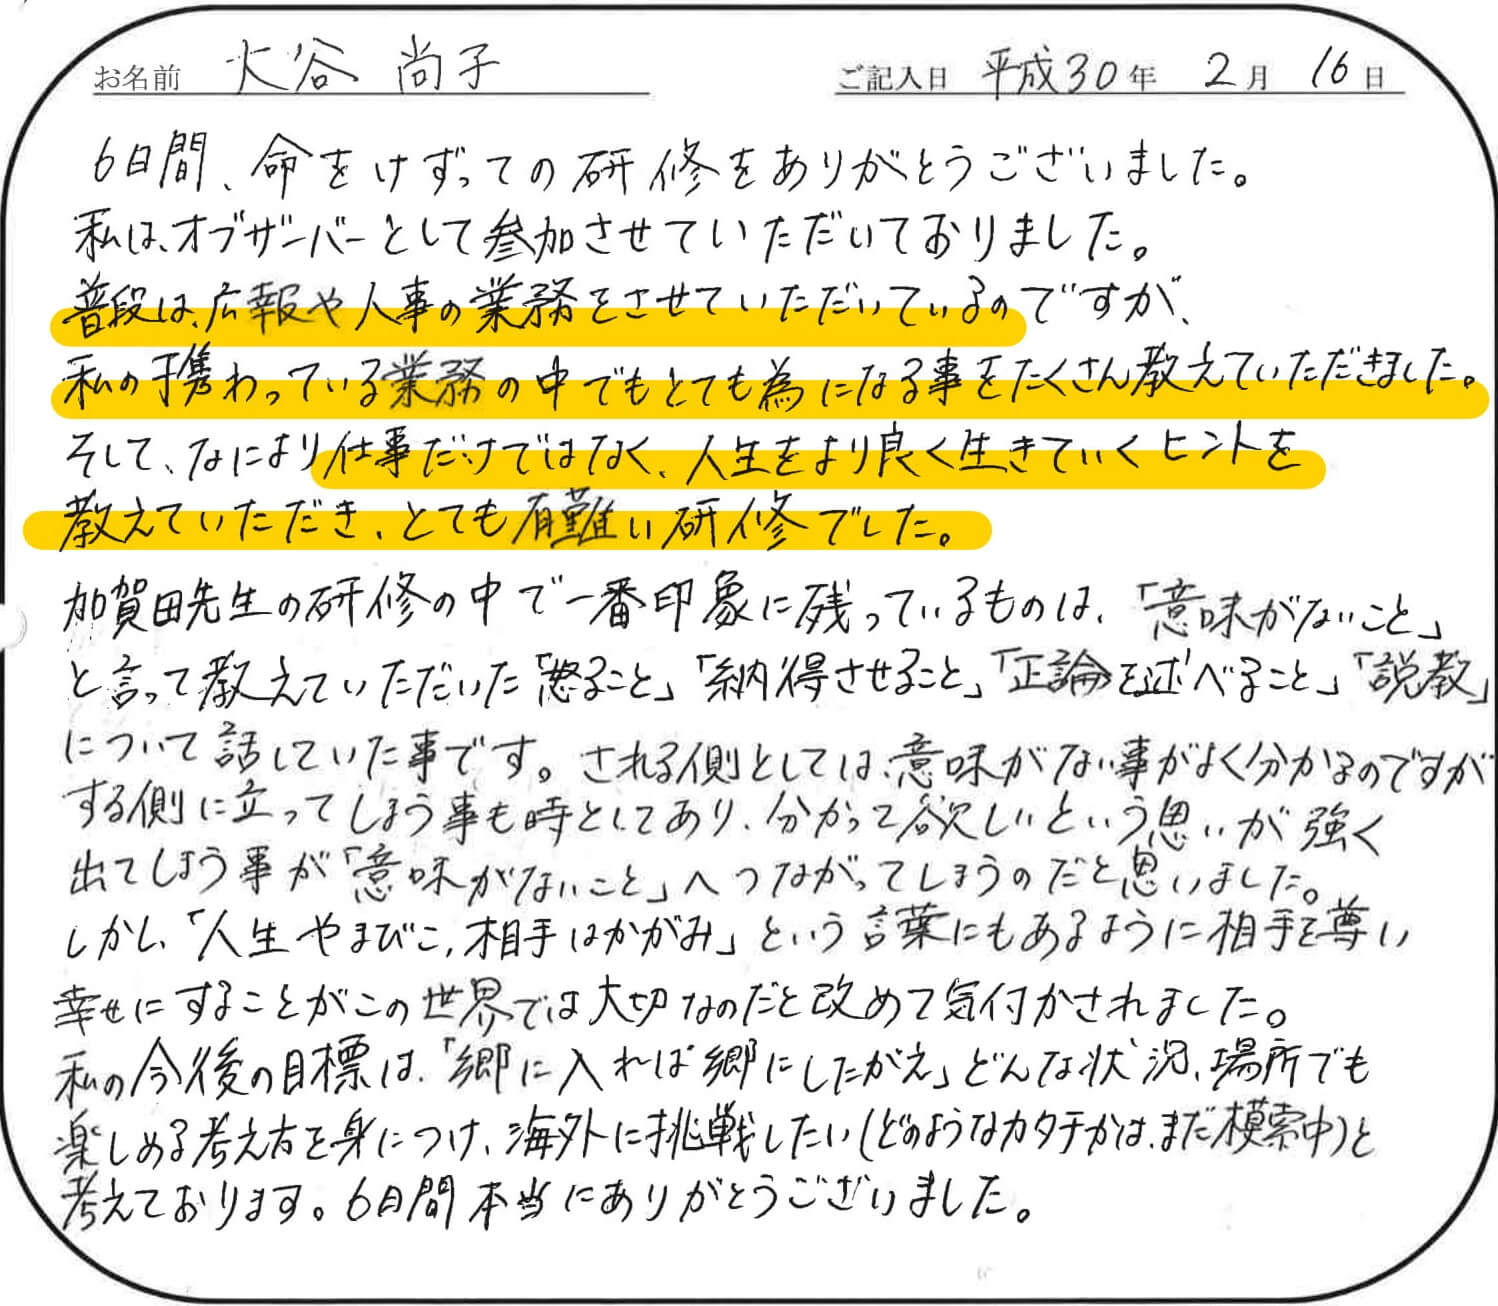 お名前 大谷 尚子 ご記入日 平成30年 2月 16日
6日間、命をけずっての研修をありがとうございました。
私は、オブザーバーとして参加させていただいておりました。
普段は、広報や人事の業務をさせていただいているのですが、
私の手携わっている業務の中でもとても為になる事をたくさん教えていただきました。
そして、なにより仕事だけではなく、人生をより良く生きていくヒントを
教えていただき、とても有難い研修でした。
加賀田先生の研修の中で一番印象に残っているものは、「意味がないこと」
と言って教えていただいた「怒ること」「納得させること」「正論を述べること」「説教」
について話していた事です。される側としては、意味がない事がよく分かるのですが
する側に立ってしまう事も時としてあり、分かって欲しいという思いが強く
出てしまう事が「意味がないこと」へつながってしまうのだと思いました。
しかし、「人生やまびこ,相手はかがみ」という言葉にもあるように相手を尊い
幸せにすることがこの世界では大切なのだと改めて気付かされました。
私の今後の目標は、「郷に入れば郷にしたがえ」どんな状況、場所でも
楽しめる考え方を身につけ、海外に挑戦したい(どのようなカタチかは、まだ模索中)と
考えております。6日間本当にありがとうございました。